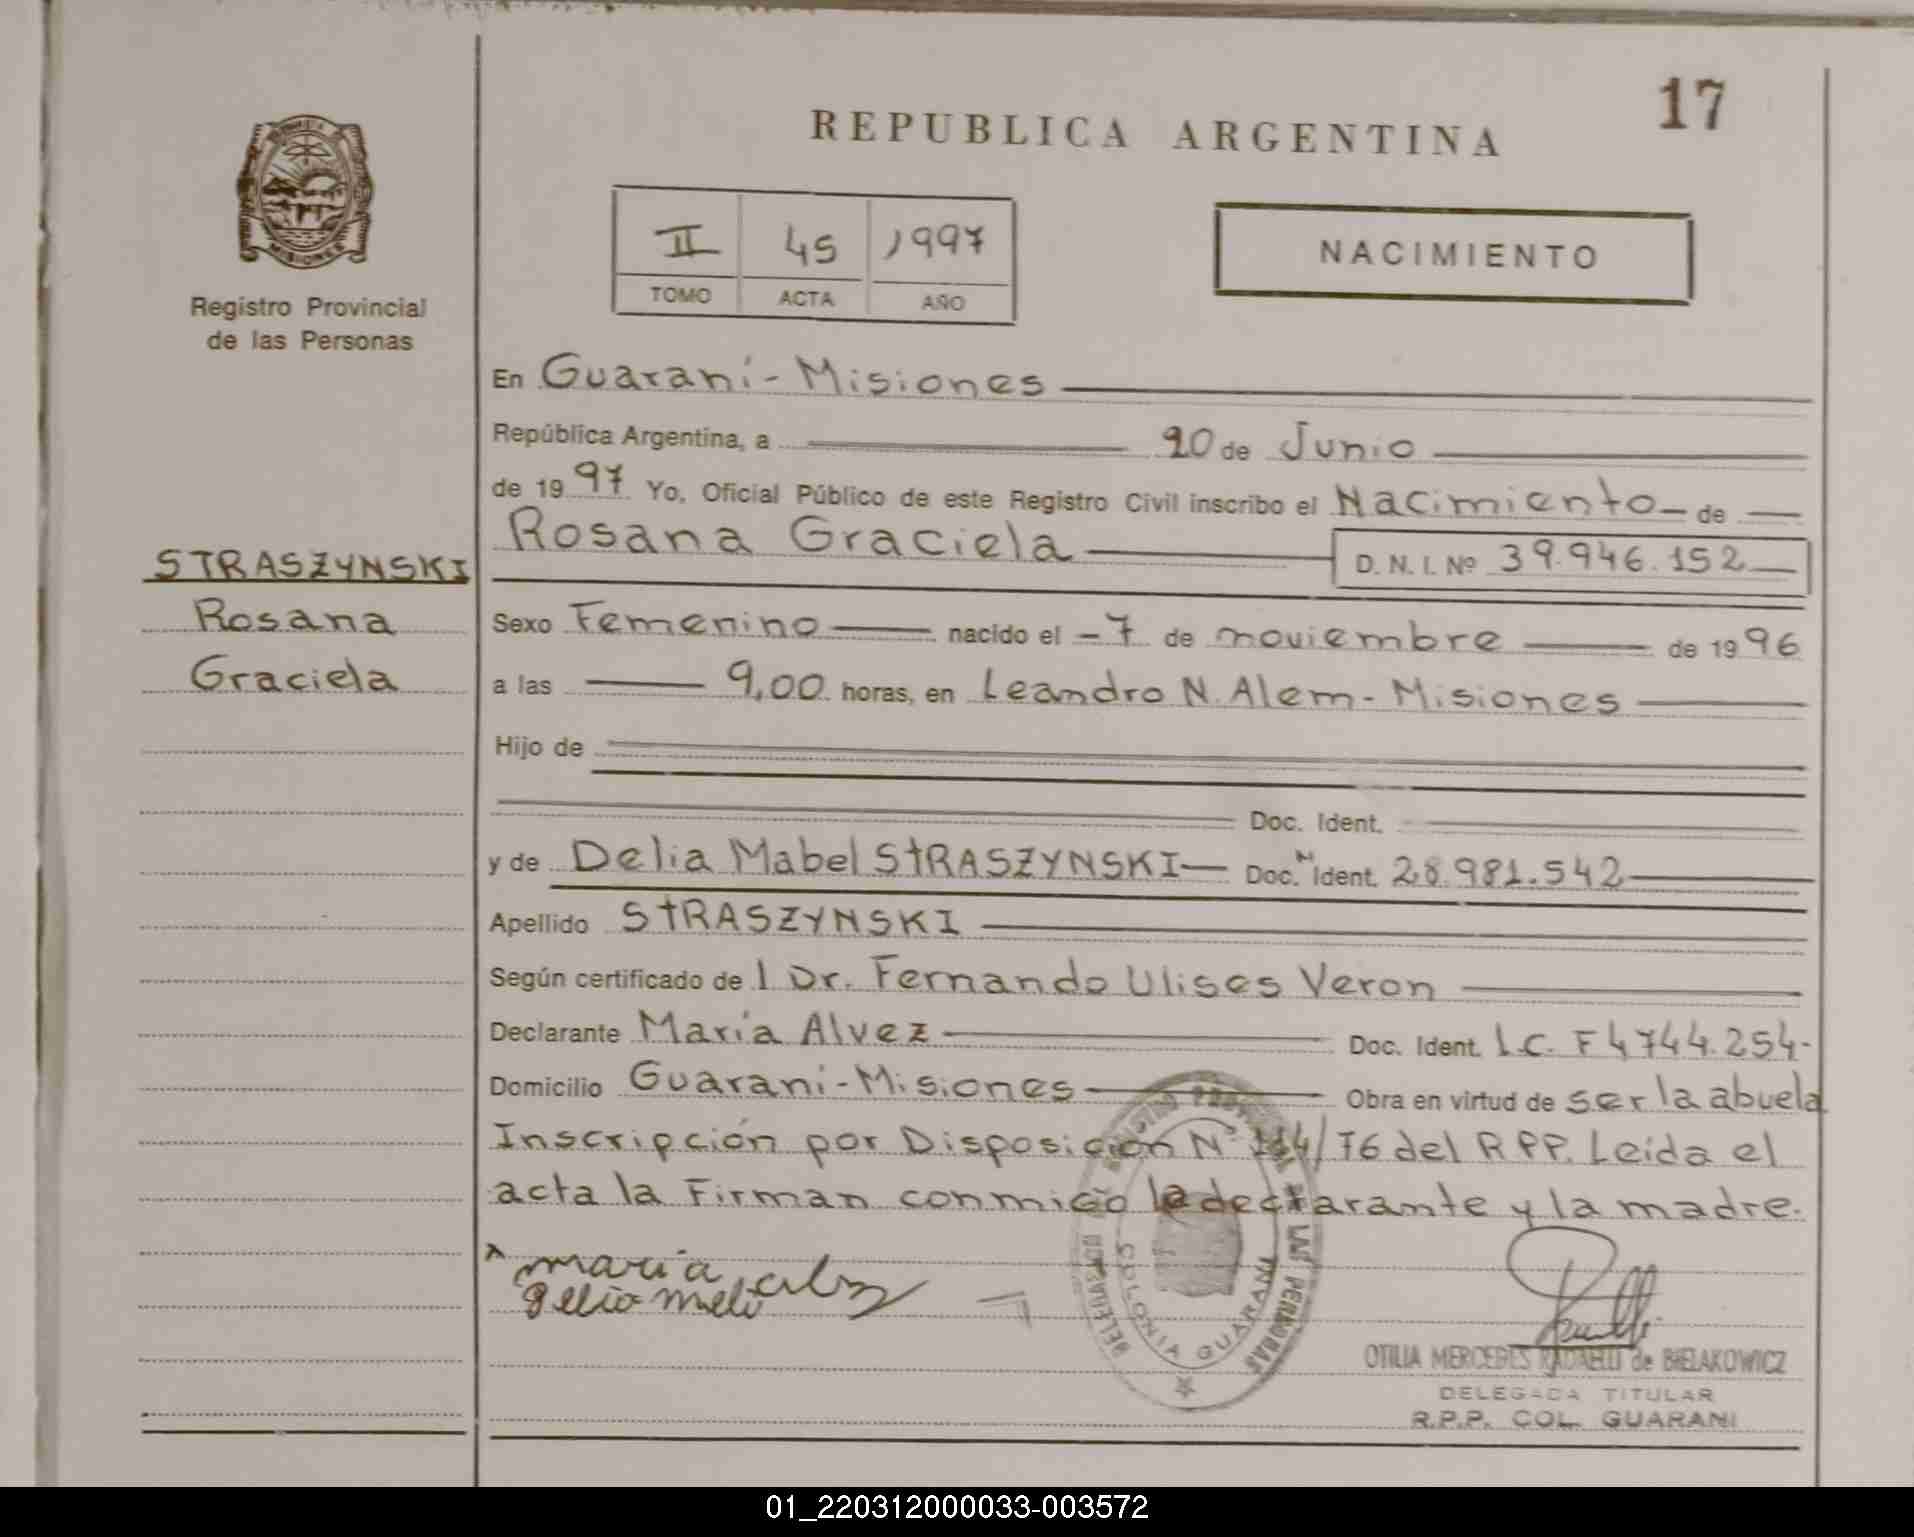 17
REPUBLICA ARGENTINA
II 45 1997
TOMO ACTA AÑO
NACIMIENTO
MISIONES
Registro Provincial
de las Personas
En Guaraní - Misiones
República Argentina, a 20 de Junio
de 1997 Yo, Oficial Público de este Registro Civil inscribo el Nacimiento de
Rosana Graciela D. N. I. Nº 39.946.152
STRASZYNSKI
Rosana
Graciela
Sexo Femenino nacido el - 7 de noviembre de 1996
a las 9,00 horas, en Leandro N. Alem - Misiones
Hijo de
Doc. Ident.
y de Delia Mabel STRASZYNSKI Doc. Ident. 28.981.542
Apellido STRASZYNSKI
Según certificado de l Dr. Fernando Ulises Veron
Declarante María Alvez Doc. Ident. L.C. F4744.254-
Domicilio Guaraní - Misiones Obra en virtud de ser la abuela
Inscripción por Disposición Nº /76 del RPP. Leída el
acta la Firman conmigo la declarante y la madre.
x maria
COLONIA GUARANI
OTILIA MERCEDES RADAELLI de BIELAKOWICZ
DELEGADA TITULAR
R.P.P. COL. GUARANI
01_220312000033-003572